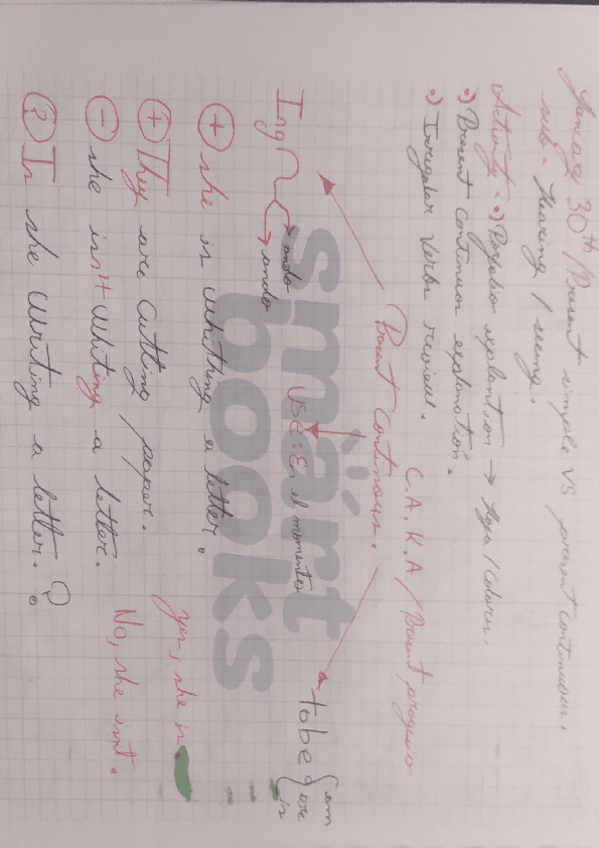 January 30th / Present simple VS present continuous.
sub- Hearing / seeing.
Activity •) Portfolio explanation → Hojas / colores.
•) Present continuous explanation.
•) Irregular verbs review.
C. A. K. A / Present progresive
Present continous.
Ing
ando
endo
USE: En el momento
to be
am
are
is
smart
books
+ she is whriting a letter.
+ They are cutting paper.
- she isn't whriting a letter.
? Is she writing a letter. ?
yes, she is.
No, she isn't.